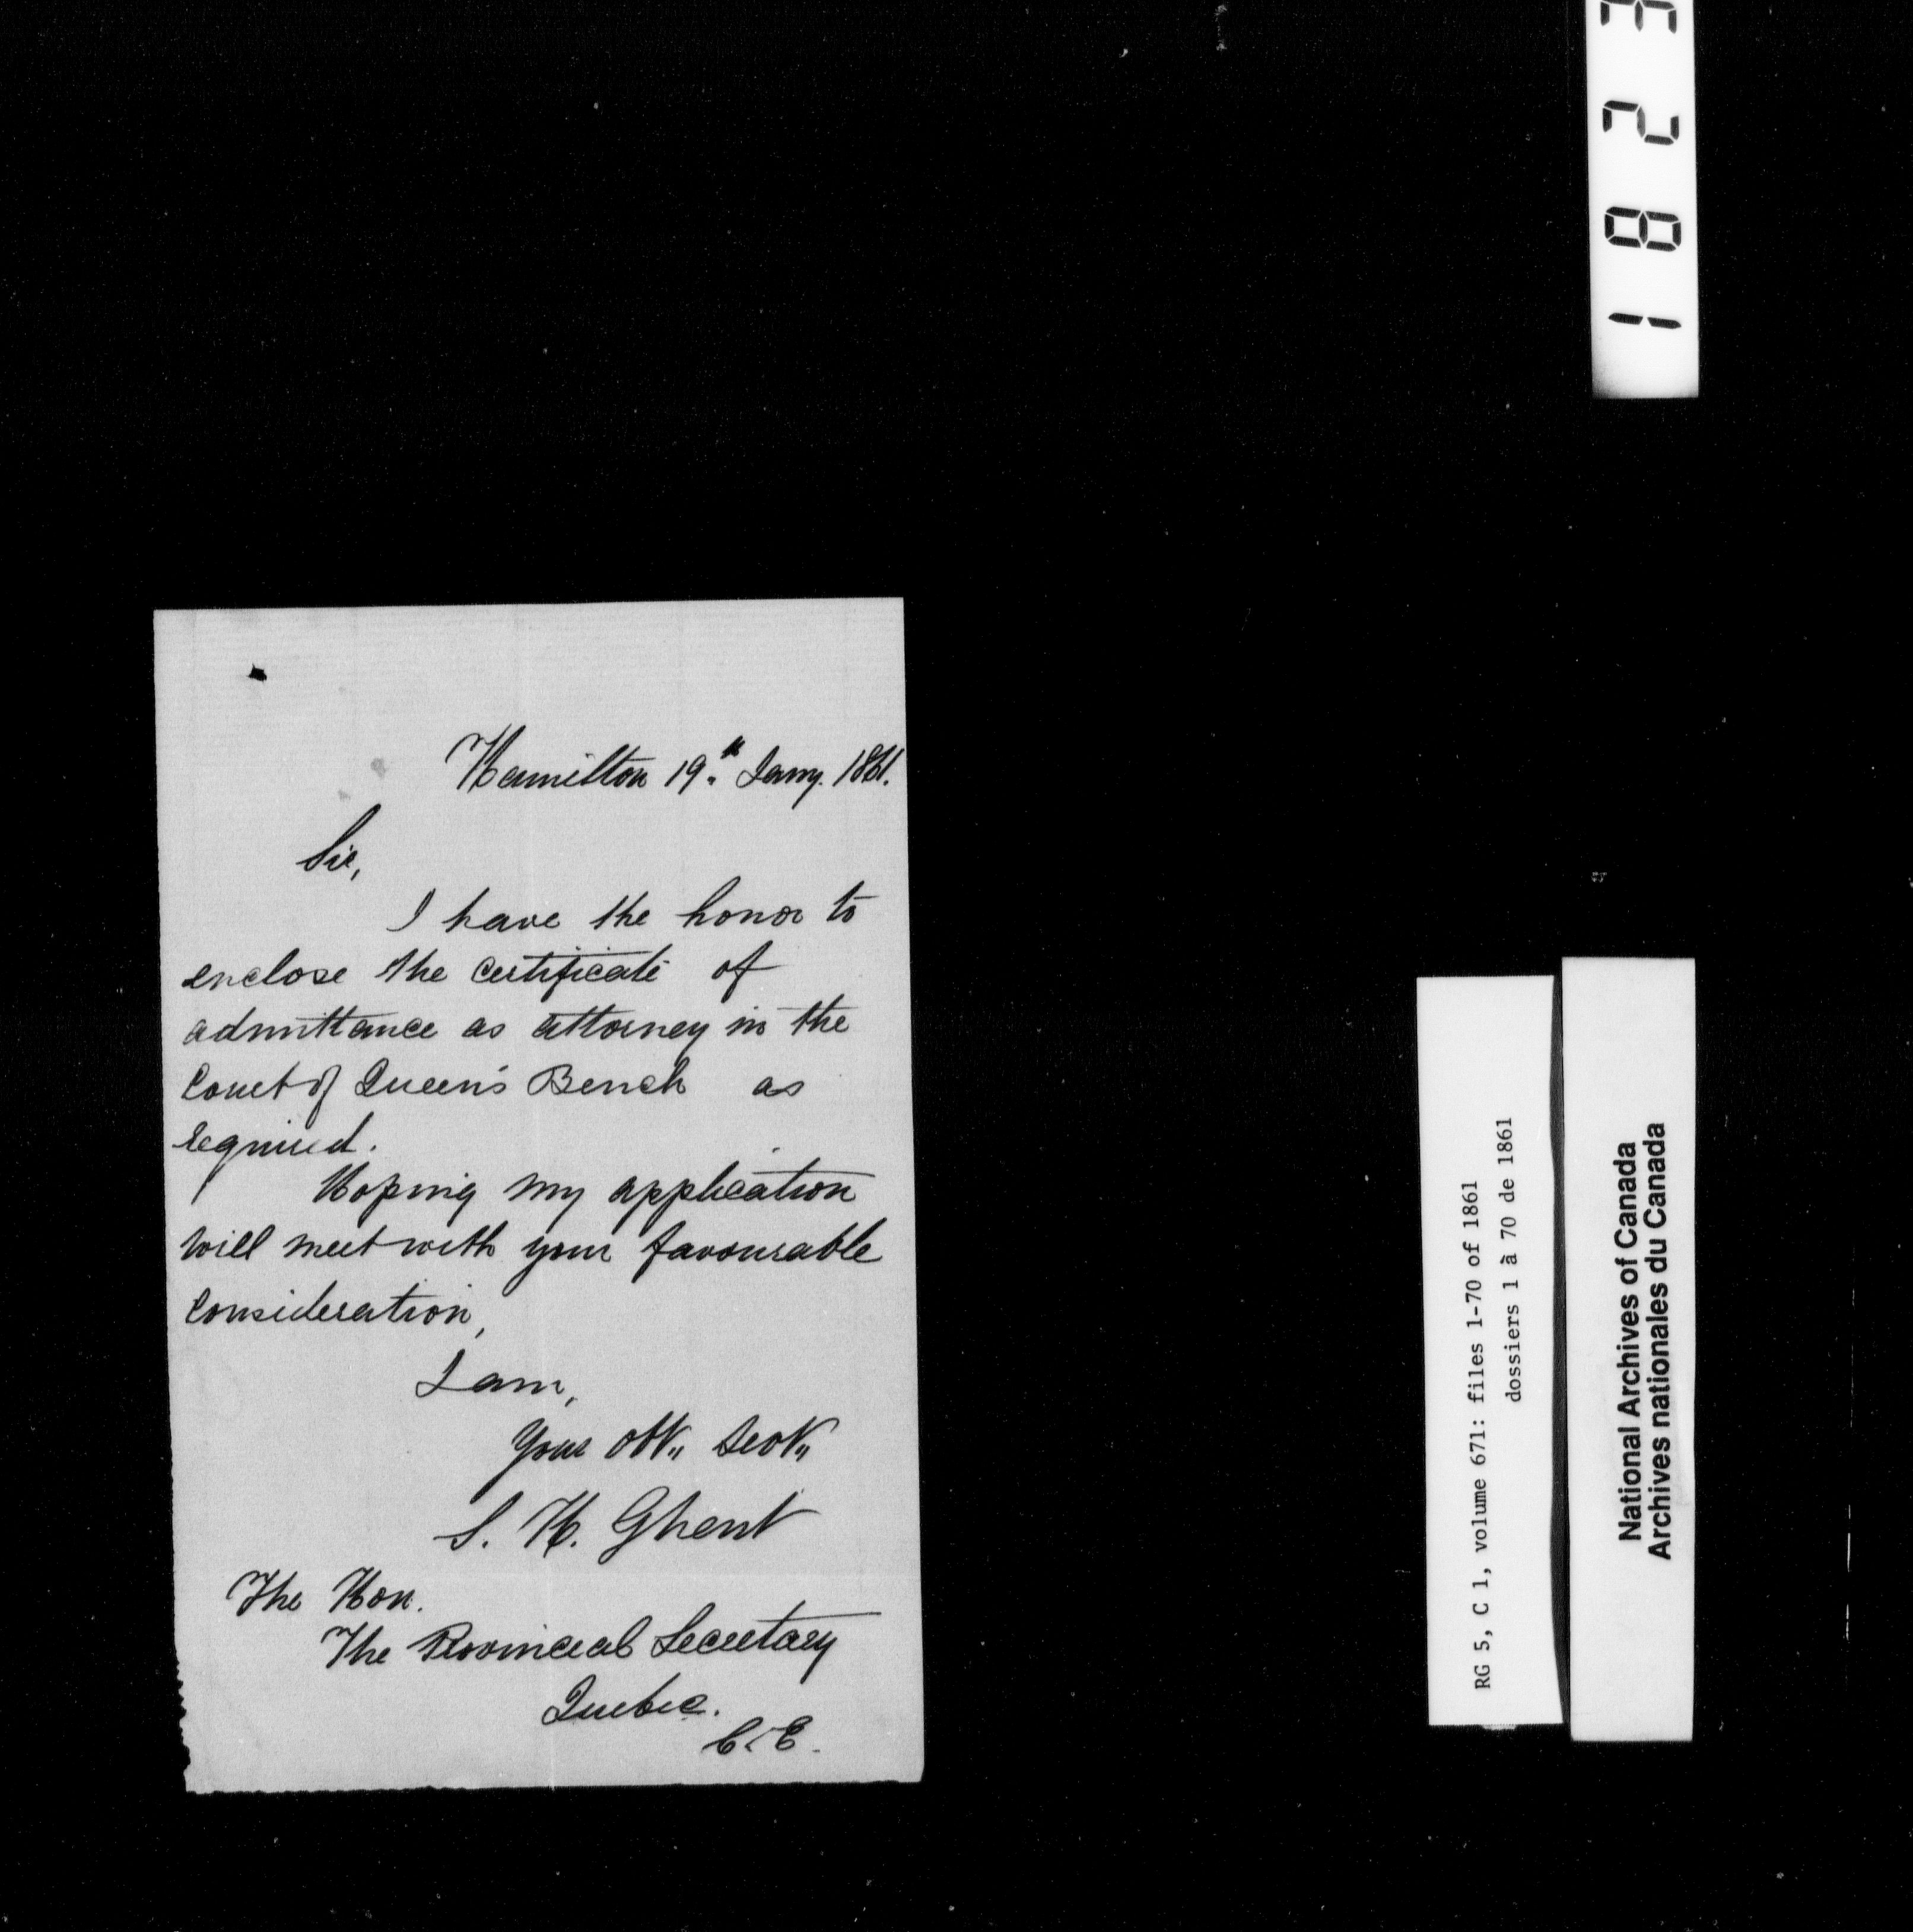 Hamilton 19th Jany. 1861.
Sir,
I have the honor to
enclose the certificate of
admittance as attorney in the
Court of Queen's Bench as
required.
Hoping my application
will meet with your favourable
consideration,
I am,
Your obt. servt.
S. H. Ghent
The Hon.
The Provincial Secretary
Quebec.
C.E.
1823
RG 5, C 1, volume 671: files 1-70 of 1861
dossiers 1 à 70 de 1861
National Archives of Canada
Archives nationales du Canada